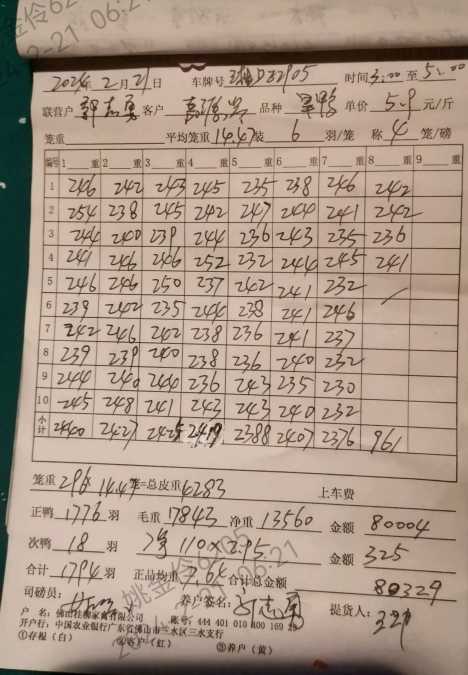 2024年2月21日 车牌号 D32905 时间3:00至5:00
联营户 郭志勇 客户 品种 单价 5.9 元/斤
笼重 平均笼重14.47 装 6 羽/笼 称 4 笼/磅
编号 1 重 2 重 3 重 4 重 5 重 6 重 7 重 8 重 9 重
1 246 242 243 245 235 238 246 242
2 254 238 245 242 247 244 241 242
3 244 240 239 244 236 243 235 236
4 241 246 246 252 232 244 245 241
5 246 246 250 237 242 241 232
6 239 242 235 244 238 241 246
7 242 246 242 238 236 241 237
8 239 239 240 238 236 240 232
9 244 240 244 236 243 235 230
10 245 248 241 243 243 240 232
小计 2440 2427 2425 2419 2388 2407 2376 961
笼重 296 × 14.47 =总皮重 4283 上车费
正鸭 1776 羽 毛重 17843 净重 13560 金额 80004
次鸭 18 羽 110×2.95 金额 325
合计 1794 羽 正品均重 7.6 合计总金额 80329
司磅员: 养户签名: 郭志勇 提货人:
户 名: 佛山桂柳家禽有限公司 账号: 444 401 010 400 169 29
开户行: 中国农业银行广东省佛山市三水区三水支行
①存根(白) ②客户(红) ③养户(黄)